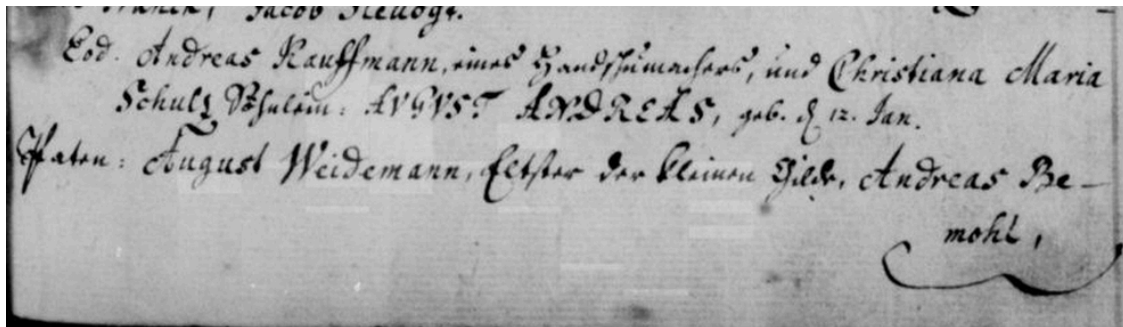 Jacob Neuvogt.
Eod. Andreas Kauffmann, eines Handschumachers, und Christiana Maria
Schultz Söhnlein: AVGVST ANDREAS, geb. d 12. Jan.
Paten: August Weidemann, Eltster der kleinen Gilde, Andreas Be-
mohl,